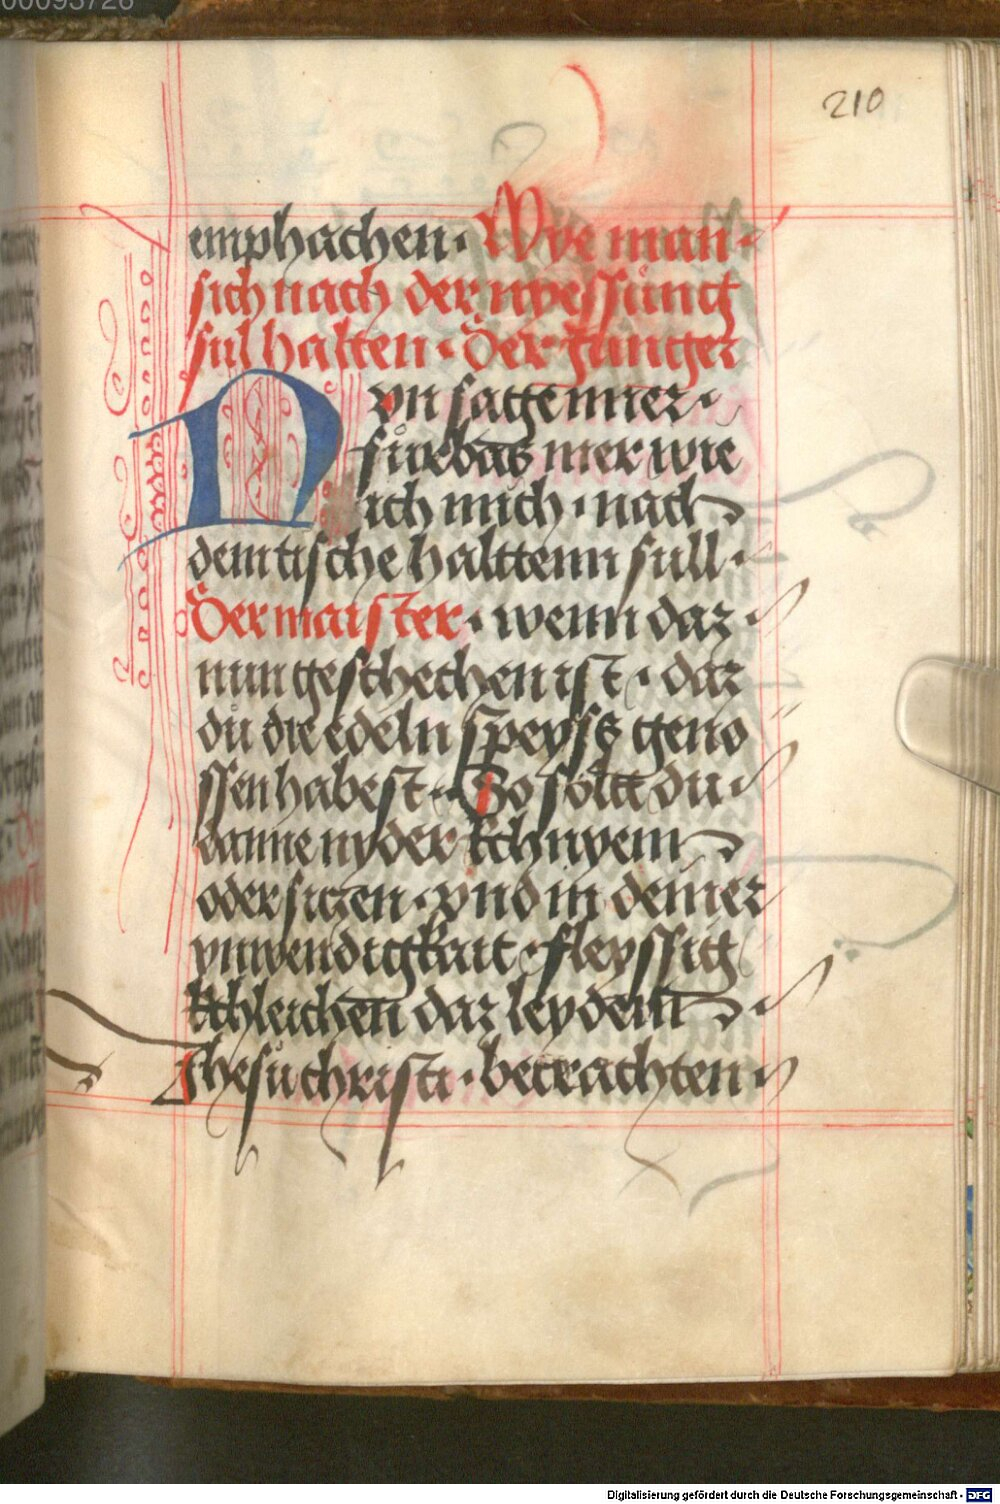 00093726
210
emphachen · Wye man ·
sich nach der nyessung
sul halten · Der Junger
Nyn sage mier ·
fürbas mer wie
ich mich · nach
dem tische haltten sull ·
Der maister · wenn daz
nun geschechen ist · daz
dü die edeln speyss geno
ssen habest · So soltt du
danne nyder kchnyein
oder siczen · vnd in deiner
ynwendigkait · fleyssig
kchleichen daz leyden
Jhesü christi · betrachten
Digitalisierung gefördert durch die Deutsche Forschungsgemeinschaft - DFG